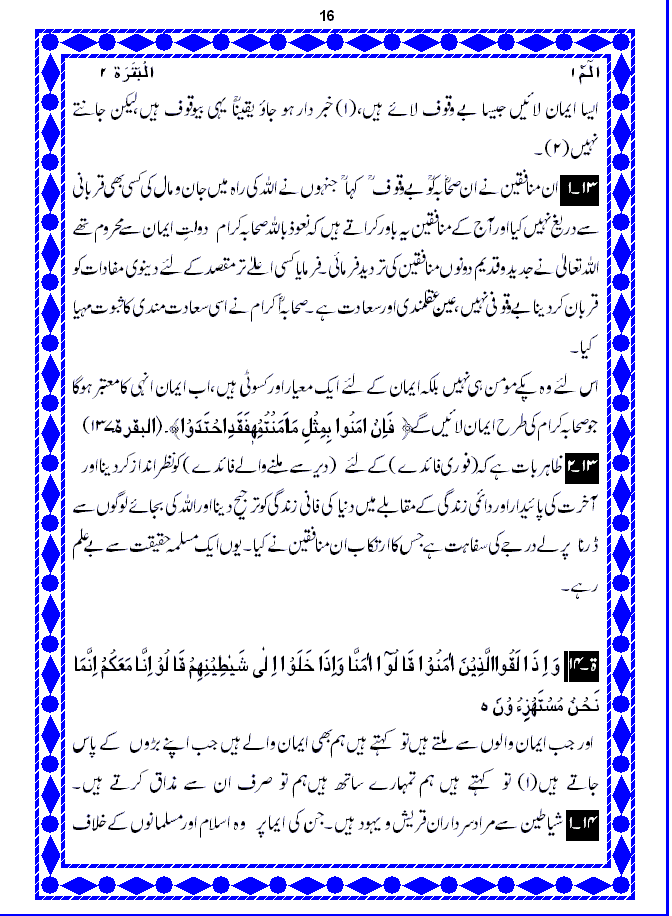 16
الٓمّٓ ١ الْبَقَرَة ٢
ایسا ایمان لائیں جیسا بے وقوف لائے ہیں،(۱) خبر دار ہو جاؤ یقیناً یہی بیوقوف ہیں،لیکن جانتے
نہیں(۲)۔
۱۳۔۱ ان منافقین نے ان صحابہؓ کو بے وقوف کہا جنہوں نے اللہ کی راہ میں جان و مال کی کسی بھی قربانی
سے دریغ نہیں کیا اور آج کے منافقین یہ باور کراتے ہیں کہ نعوذ باللہ صحابہ کرام دولتِ ایمان سے محروم تھے
اللہ تعالٰی نے جدید و قدیم دونوں منافقین کی تردید فرمائی۔فرمایا کسی اعلٰے تر مقصد کے لئے دینوی مفادات کو
قربان کر دینا بے وقوفی نہیں،عین عقلمندی اور سعادت ہے۔صحابہؓ اکرام نے اسی سعادت مندی کا ثبوت مہیا
کیا۔
اس لئے وہ پکے مومن ہی نہیں بلکہ ایمان کے لئے ایک معیار اور کسوٹی ہیں،اب ایمان انہی کا معتبر ہوگا
جو صحابہ کرام کی طرح ایمان لائیں گے ﴿ فَاِنْ اٰمَنُوا بِمِثْلِ مَااٰمَنْتُمْ بِهٖ فَقَدِاھْتَدَوْا﴾۔(البقرة۔۱۳۷)
۱۳۔۲ ظاہر بات ہے کہ(فوری فائدے)کے لئے (دیر سے ملنے والے فائدے) کو نظر انداز کر دینا اور
آخرت کی پائیدار اور دائمی زندگی کے مقابلے میں دنیا کی فانی زندگی کو ترجیح دینا اور اللہ کی بجائے لوگوں سے
ڈرنا پرلے درجے کی سفاہت ہے جس کا ارتکاب ان منافقین نے کیا۔یوں ایک مسلمہ حقیقت سے بے علم
رہے۔
ة۔۱۴ وَ اِذَا لَقُوا الَّذِيْنَ اٰمَنُوْا قَالُوْٓا اٰمَنَّا وَاِذَا خَلَوْا اِلٰى شَيٰطِيْنِهِمْ قَالُوْ اِنَّا مَعَكُمْ اِنَّمَا
نَحْنُ مُسْتَهْزِءُوْنَ ہ
اور جب ایمان والوں سے ملتے ہیں تو کہتے ہیں ہم بھی ایمان والے ہیں جب اپنے بڑوں کے پاس
جاتے ہیں(۱) تو کہتے ہیں ہم تمہارے ساتھ ہیں ہم تو صرف ان سے مذاق کرتے ہیں۔
۱۴۔۱ شیاطین سے مراد سرداران قریش و یہود ہیں۔جن کی ایما پر وہ اسلام اور مسلمانوں کے خلاف